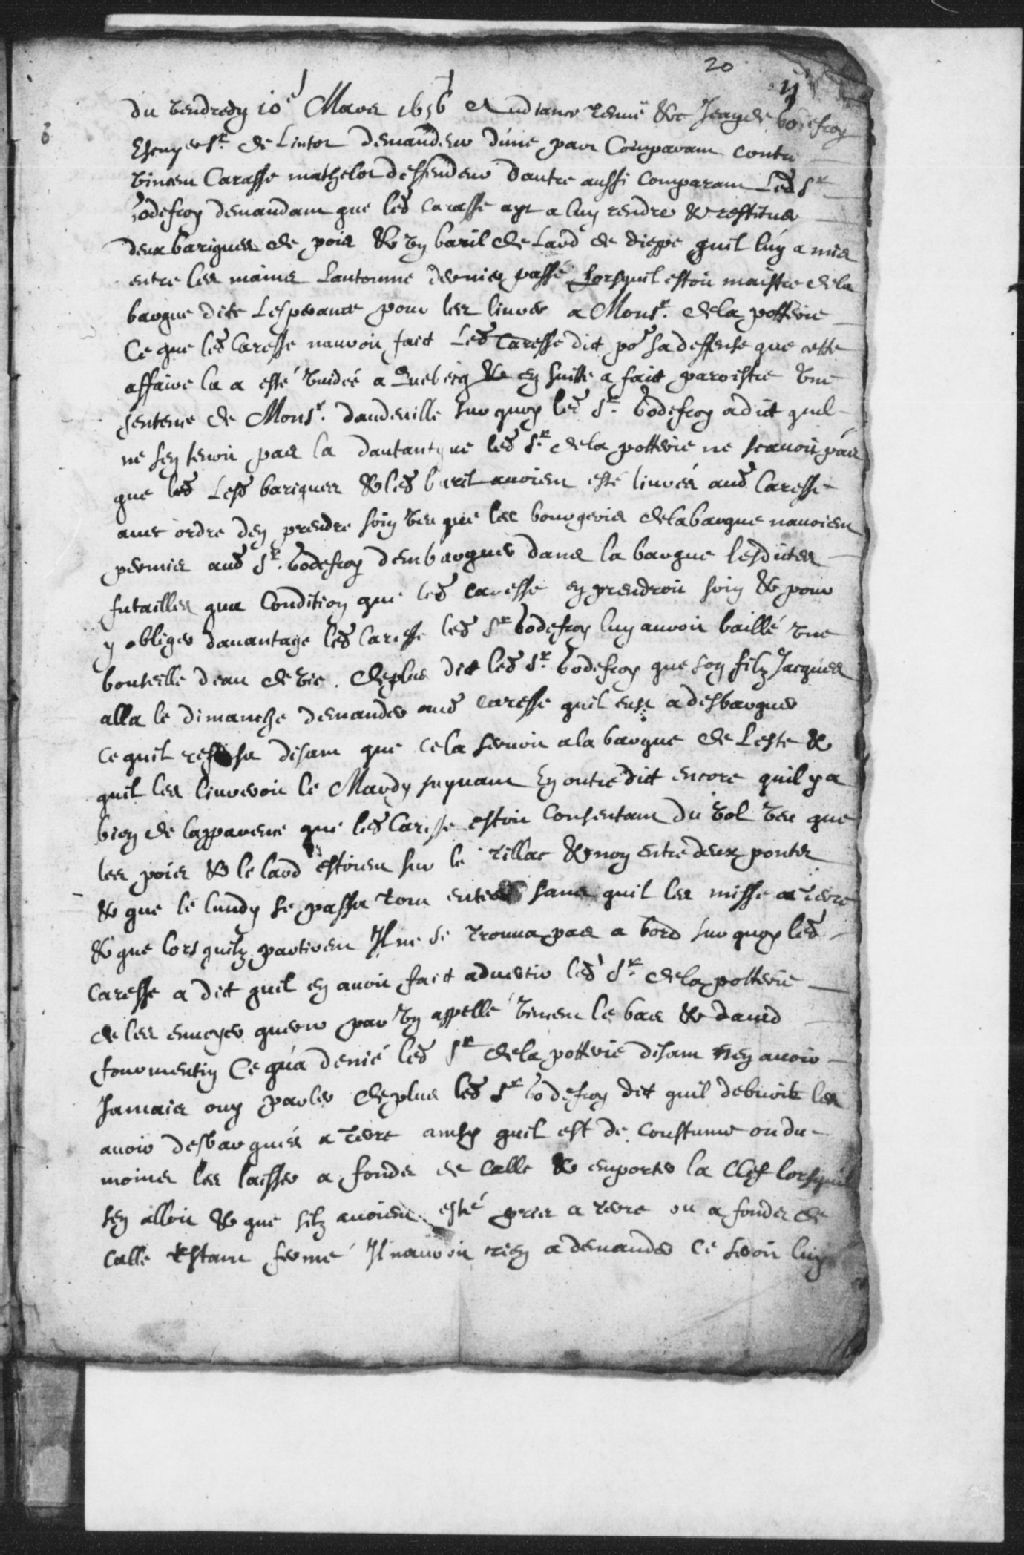 20
du vendredy 10e Mars 1656 Audiance tenue &c Jean de Godefroy
Escuyer Sr. de Lintot demandeur d'une part Comparant contre
Vincent Caresse mathelot deffendeur d'autre aussi Comparant Led Sr
Godefroy demandant que led Caresse ayt a luy rendre & restituer
deux bariques de pois & un baril de Lard de dieppe quil luy a mis
entre les mains Lautomne dernier passé Lorsquil estoit maistre de la
barque dite Lesperance pour les livrer a Monsr. de la potterie
Ce que led Caresse nauroit fait Led Caresse dit po sa deffense que cette
affaire la a esté vuidée a Quebecq & en suitte a fait paroistre une
sentence de Monsr. Daudeville sur quoy led Sr. Godefroy a dit quil
ne sen tenoit pas la dautant que led Sr. de la potterie ne scavoit pas
que led Lesd bariques & led baril avoient esté livrés aud Caresse
avec ordre den prendre soin veu que les bourgeois de la barque navoient
permis aud Sr. Godefroy dembarquer dans la barque lesdites
futailles qua Condition que led Caresse en prendroit soin & pour
y obliger davantage led Caresse led Sr Godefroy luy auroit baillé une
bouteille deau de vie. de plus dit led Sr. Godefroy que son filz Jacques
alla le dimanche demander aud Caresse quil eust a desbarquer
ce quil refusa disant que cela servoit a la barque de Leste &
quil les livreroit le Mardy suyvant En outre dit encore quil y a
bien de lapparence que led Caresse estoit Consentant du vol veu que
les pois & le lard estoient sur le tillac & non entre deux ponts
& que le lundy se passa tout entier sans quil les misse a terre
& que lors quilz partirent Il ne se trouva pas a bord sur quoy led
Caresse a dit quil en avoit fait advertir led Sr. de la potterie
de les envoyer querir par un appellé Vincent le bas & david
fourmentin Ce qua denié led Sr de la potterie disant nen avoir
Jamais ouy parler de plus led Sr Godefroy dit quil debvoit les
avoir desbarqués a terre ainsy quil est de Coustume ou du
moins les laisser a fonds de Calle & emporter la Clef lorsquil
sen alloit & que silz avoient esté pris a terre ou a fonds de
Calle Estant fermé Il nauroit rien a demander Ce seroit luy